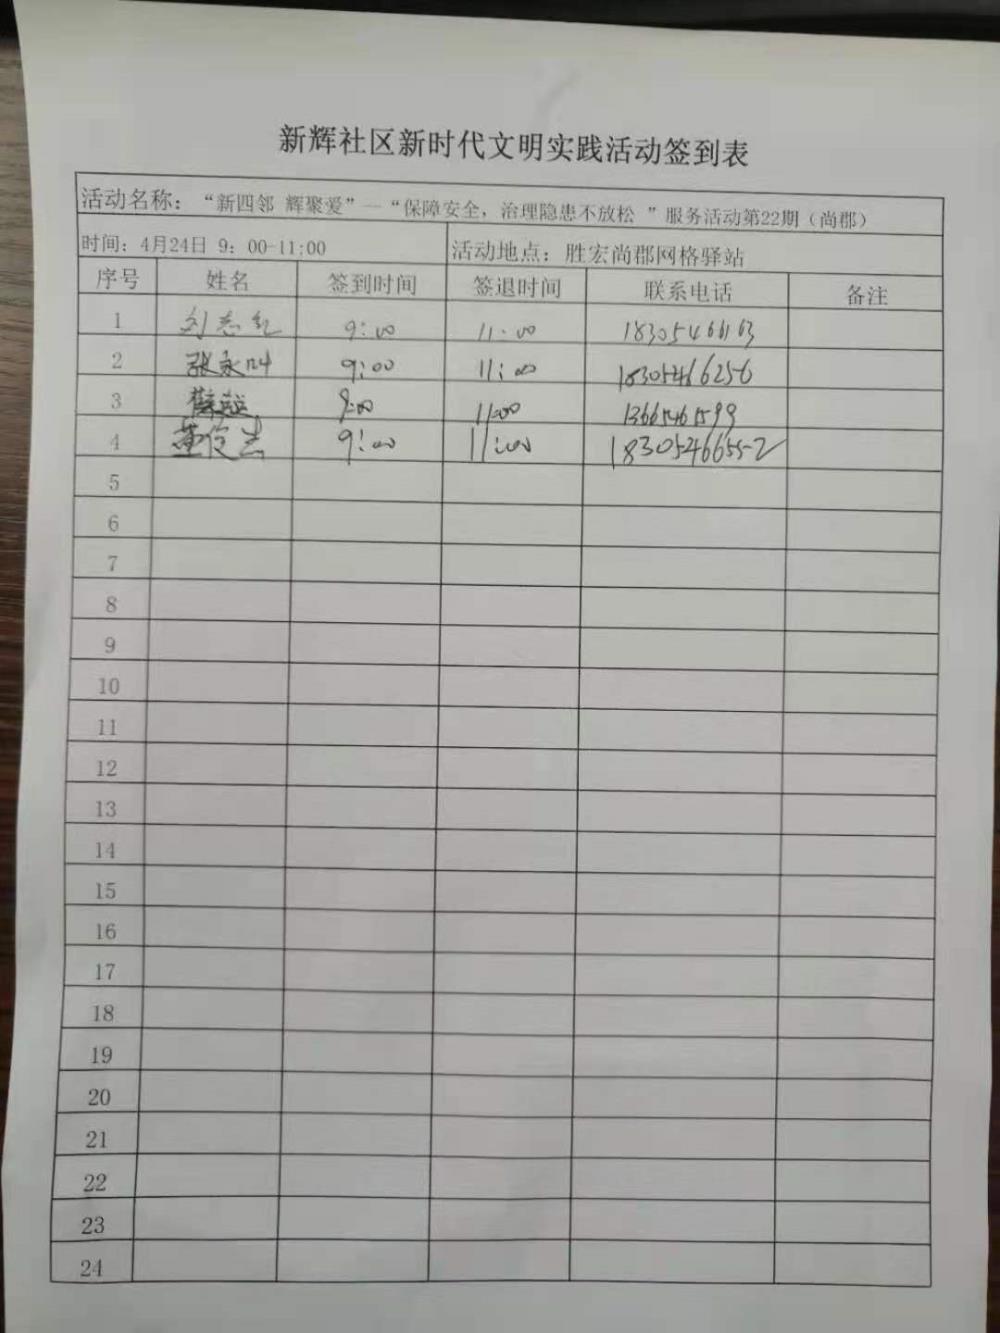 新辉社区新时代文明实践活动签到表
活动名称：“新四邻 辉聚爱”—“保障安全，治理隐患不放松 ”服务活动第22期（尚郡）
时间：4月24日 9：00-11:00 活动地点：胜宏尚郡网格驿站
序号 姓名 签到时间 签退时间 联系电话 备注
1 刘志红 9:00 11:00 18305466163
2 张永叶 9:00 11:00 18305466256
3 9:00 11:00
4 董俊杰 9:00 11:00 18305466552
5
6
7
8
9
10
11
12
13
14
15
16
17
18
19
20
21
22
23
24